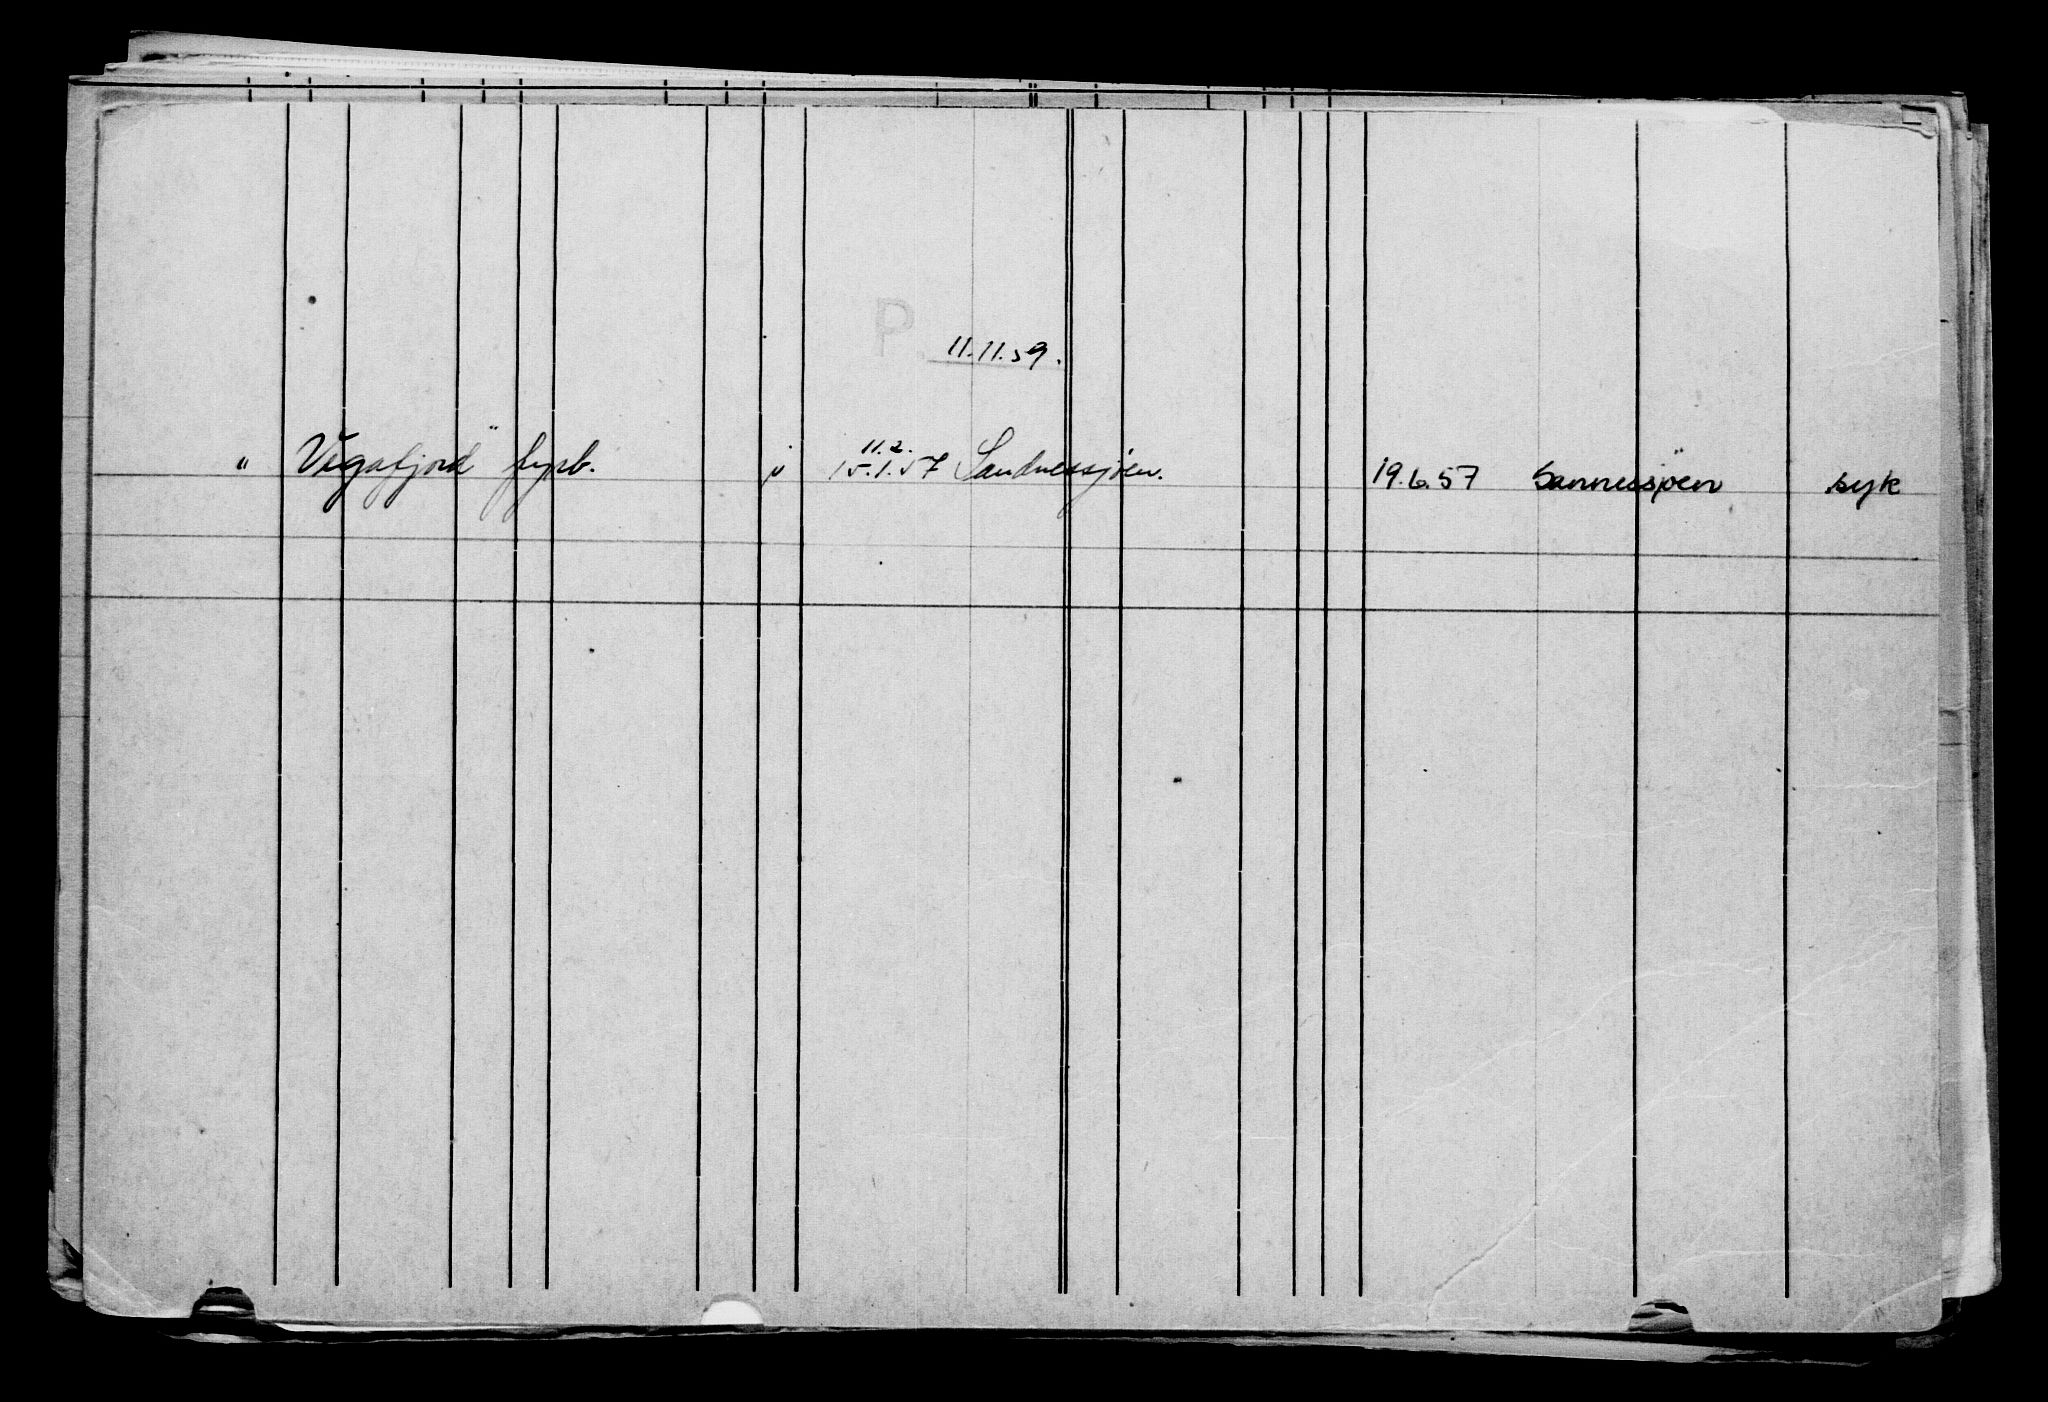 P
11.11.59.
11.2.
"Vegafjord" fyrb. j 15.1.57 Sandnessjøen. 19.6.57 Sannessjøen syk